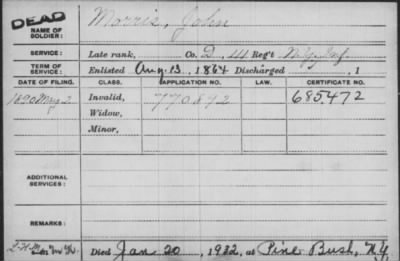 DEAD
NAME OF SOLDIER: Morris, John
SERVICE: Late rank, Co. D, 44 Reg't N.Y. Inf.
TERM OF SERVICE: Enlisted Aug. 13, 1864 Discharged , 1
DATE OF FILING. CLASS. APPLICATION NO. LAW. CERTIFICATE NO.
1890 May 2 Invalid, 770892 685472
Widow,
Minor,
ADDITIONAL SERVICES:
REMARKS:
Died Jan 20, 1932, at Pine Bush, N.Y.